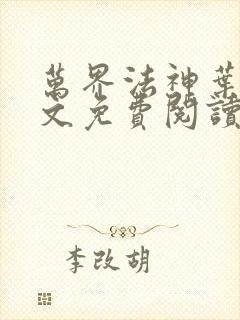 萬界法神葉
文免費閱讀
李改胡